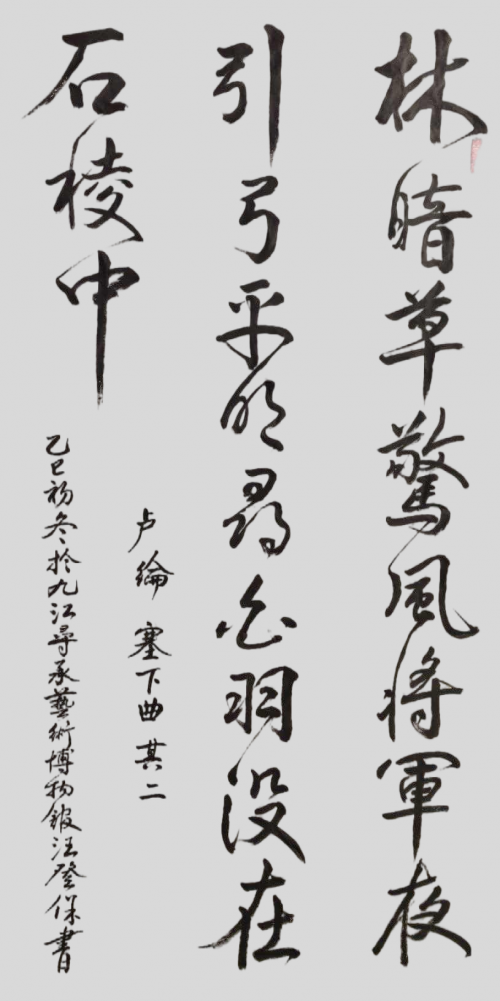 林暗草驚風将軍夜
引弓平明尋白羽没在
石稜中
卢綸塞下曲其二
乙巳初冬於九江尋承藝術博物館汪登保書